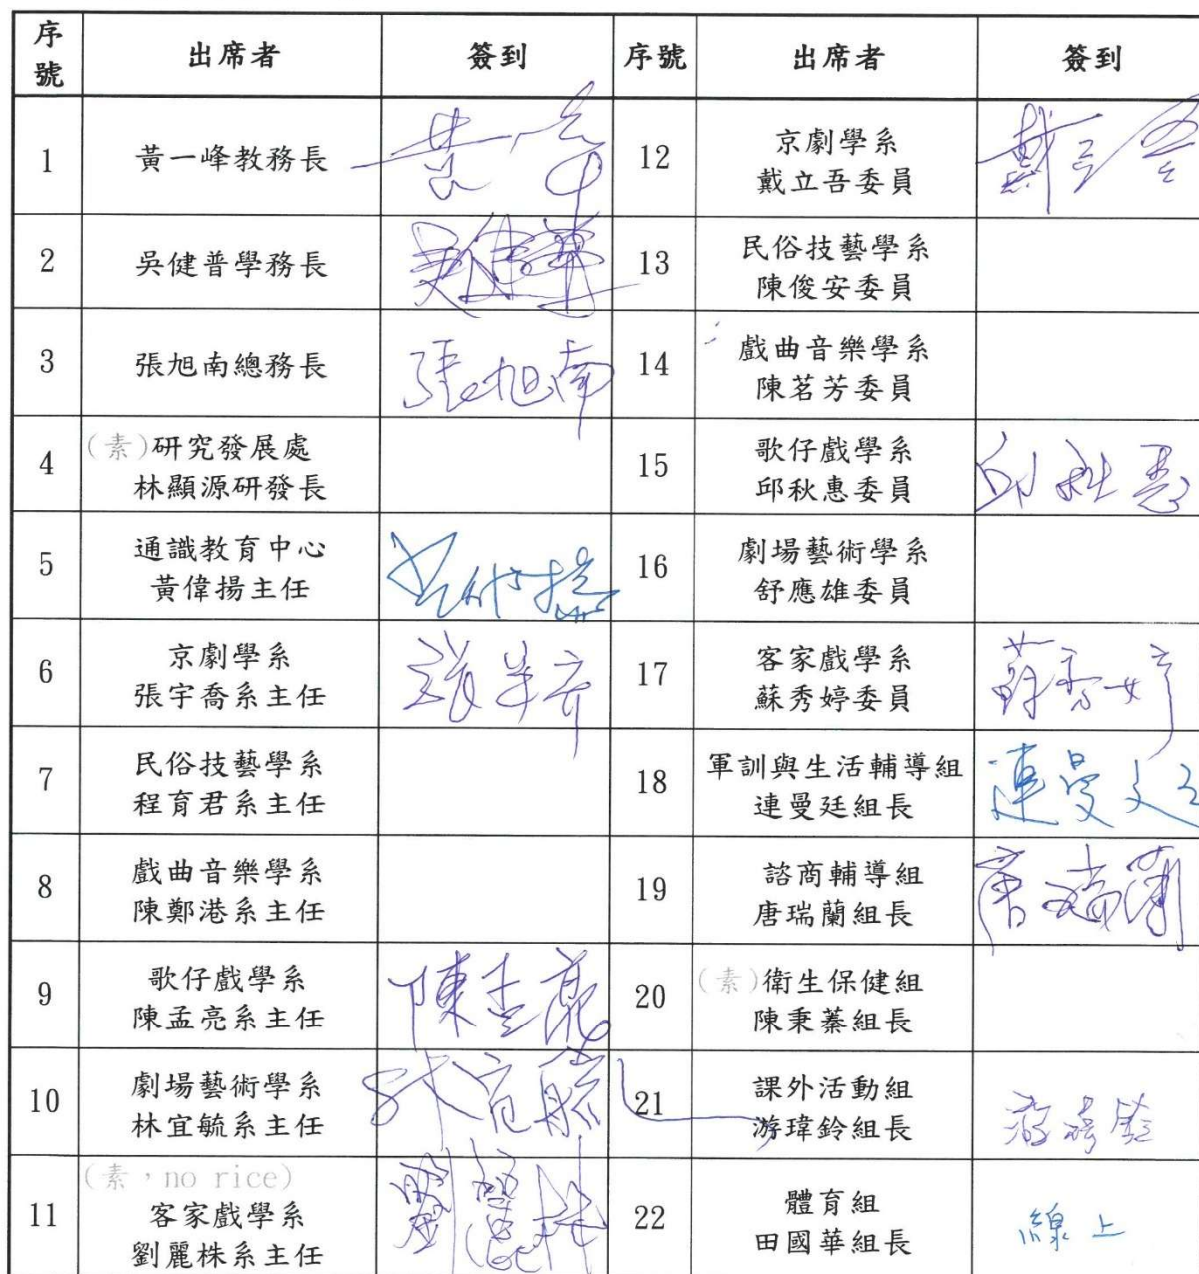 序號 出席者 簽到 序號 出席者 簽到
1 黃一峰教務長 12 京劇學系
戴立吾委員
2 吳健普學務長 13 民俗技藝學系
陳俊安委員
3 張旭南總務長 張旭南 14 戲曲音樂學系
陳茗芳委員
4 (素)研究發展處
林顯源研發長 15 歌仔戲學系
邱秋惠委員 邱秋惠
5 通識教育中心
黃偉揚主任 16 劇場藝術學系
舒應雄委員
6 京劇學系
張宇喬系主任 17 客家戲學系
蘇秀婷委員 蘇秀婷
7 民俗技藝學系
程育君系主任 18 軍訓與生活輔導組
連曼廷組長 連曼廷
8 戲曲音樂學系
陳鄭港系主任 19 諮商輔導組
唐瑞蘭組長 唐瑞蘭
9 歌仔戲學系
陳孟亮系主任 陳孟亮 20 (素)衛生保健組
陳秉蓁組長
10 劇場藝術學系
林宜毓系主任 林宜毓 21 課外活動組
游瑋鈴組長 游瑋鈴
11 (素，no rice)
客家戲學系
劉麗株系主任 劉麗株 22 體育組
田國華組長 線上